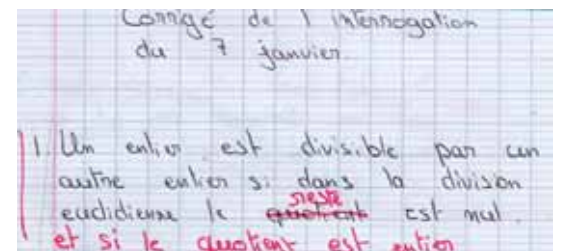 Corrigé de l'interrogation
du 7 janvier.
1. Un entier est divisible par un
autre entier si dans la division
euclidienne le quotient reste est nul.
et si le quotient est entier